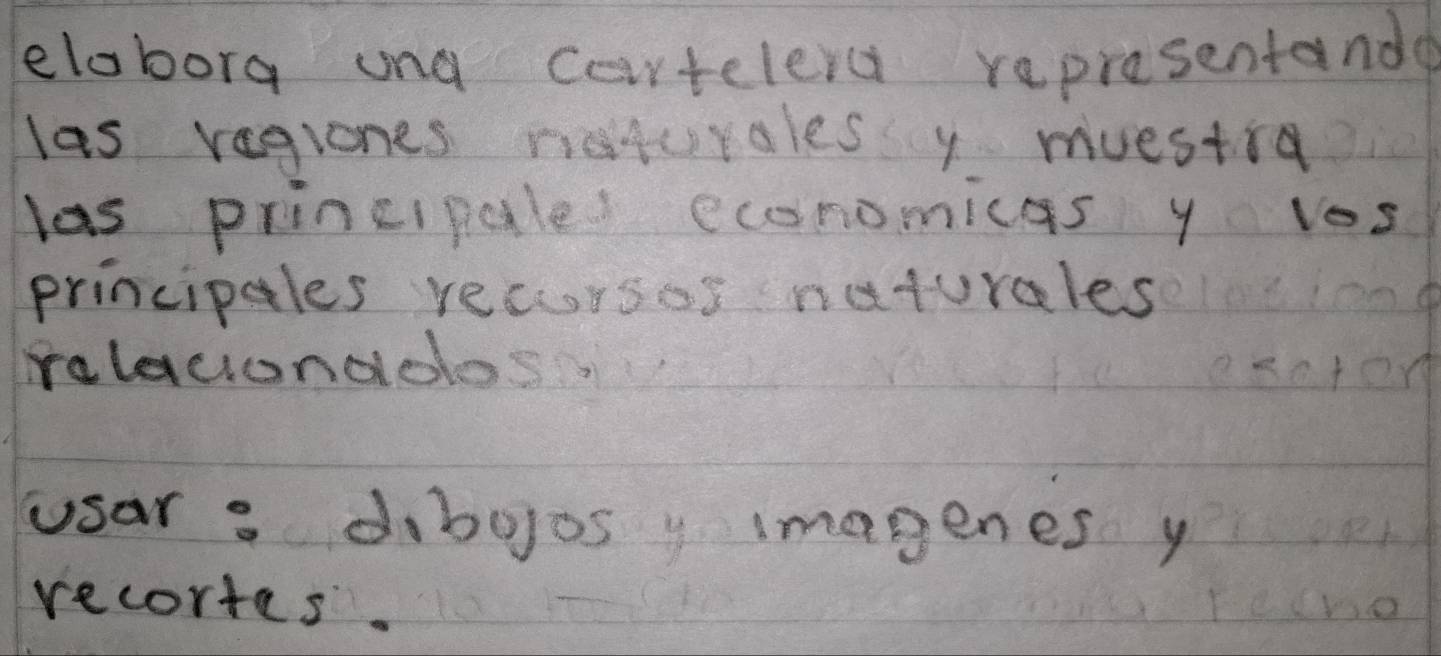 elabora una cartelera representando
las regiones naturales y muestra
las principales economicas y los
principales recursos naturales
relacionados
usar: dibujos y imagenes y
recortes.